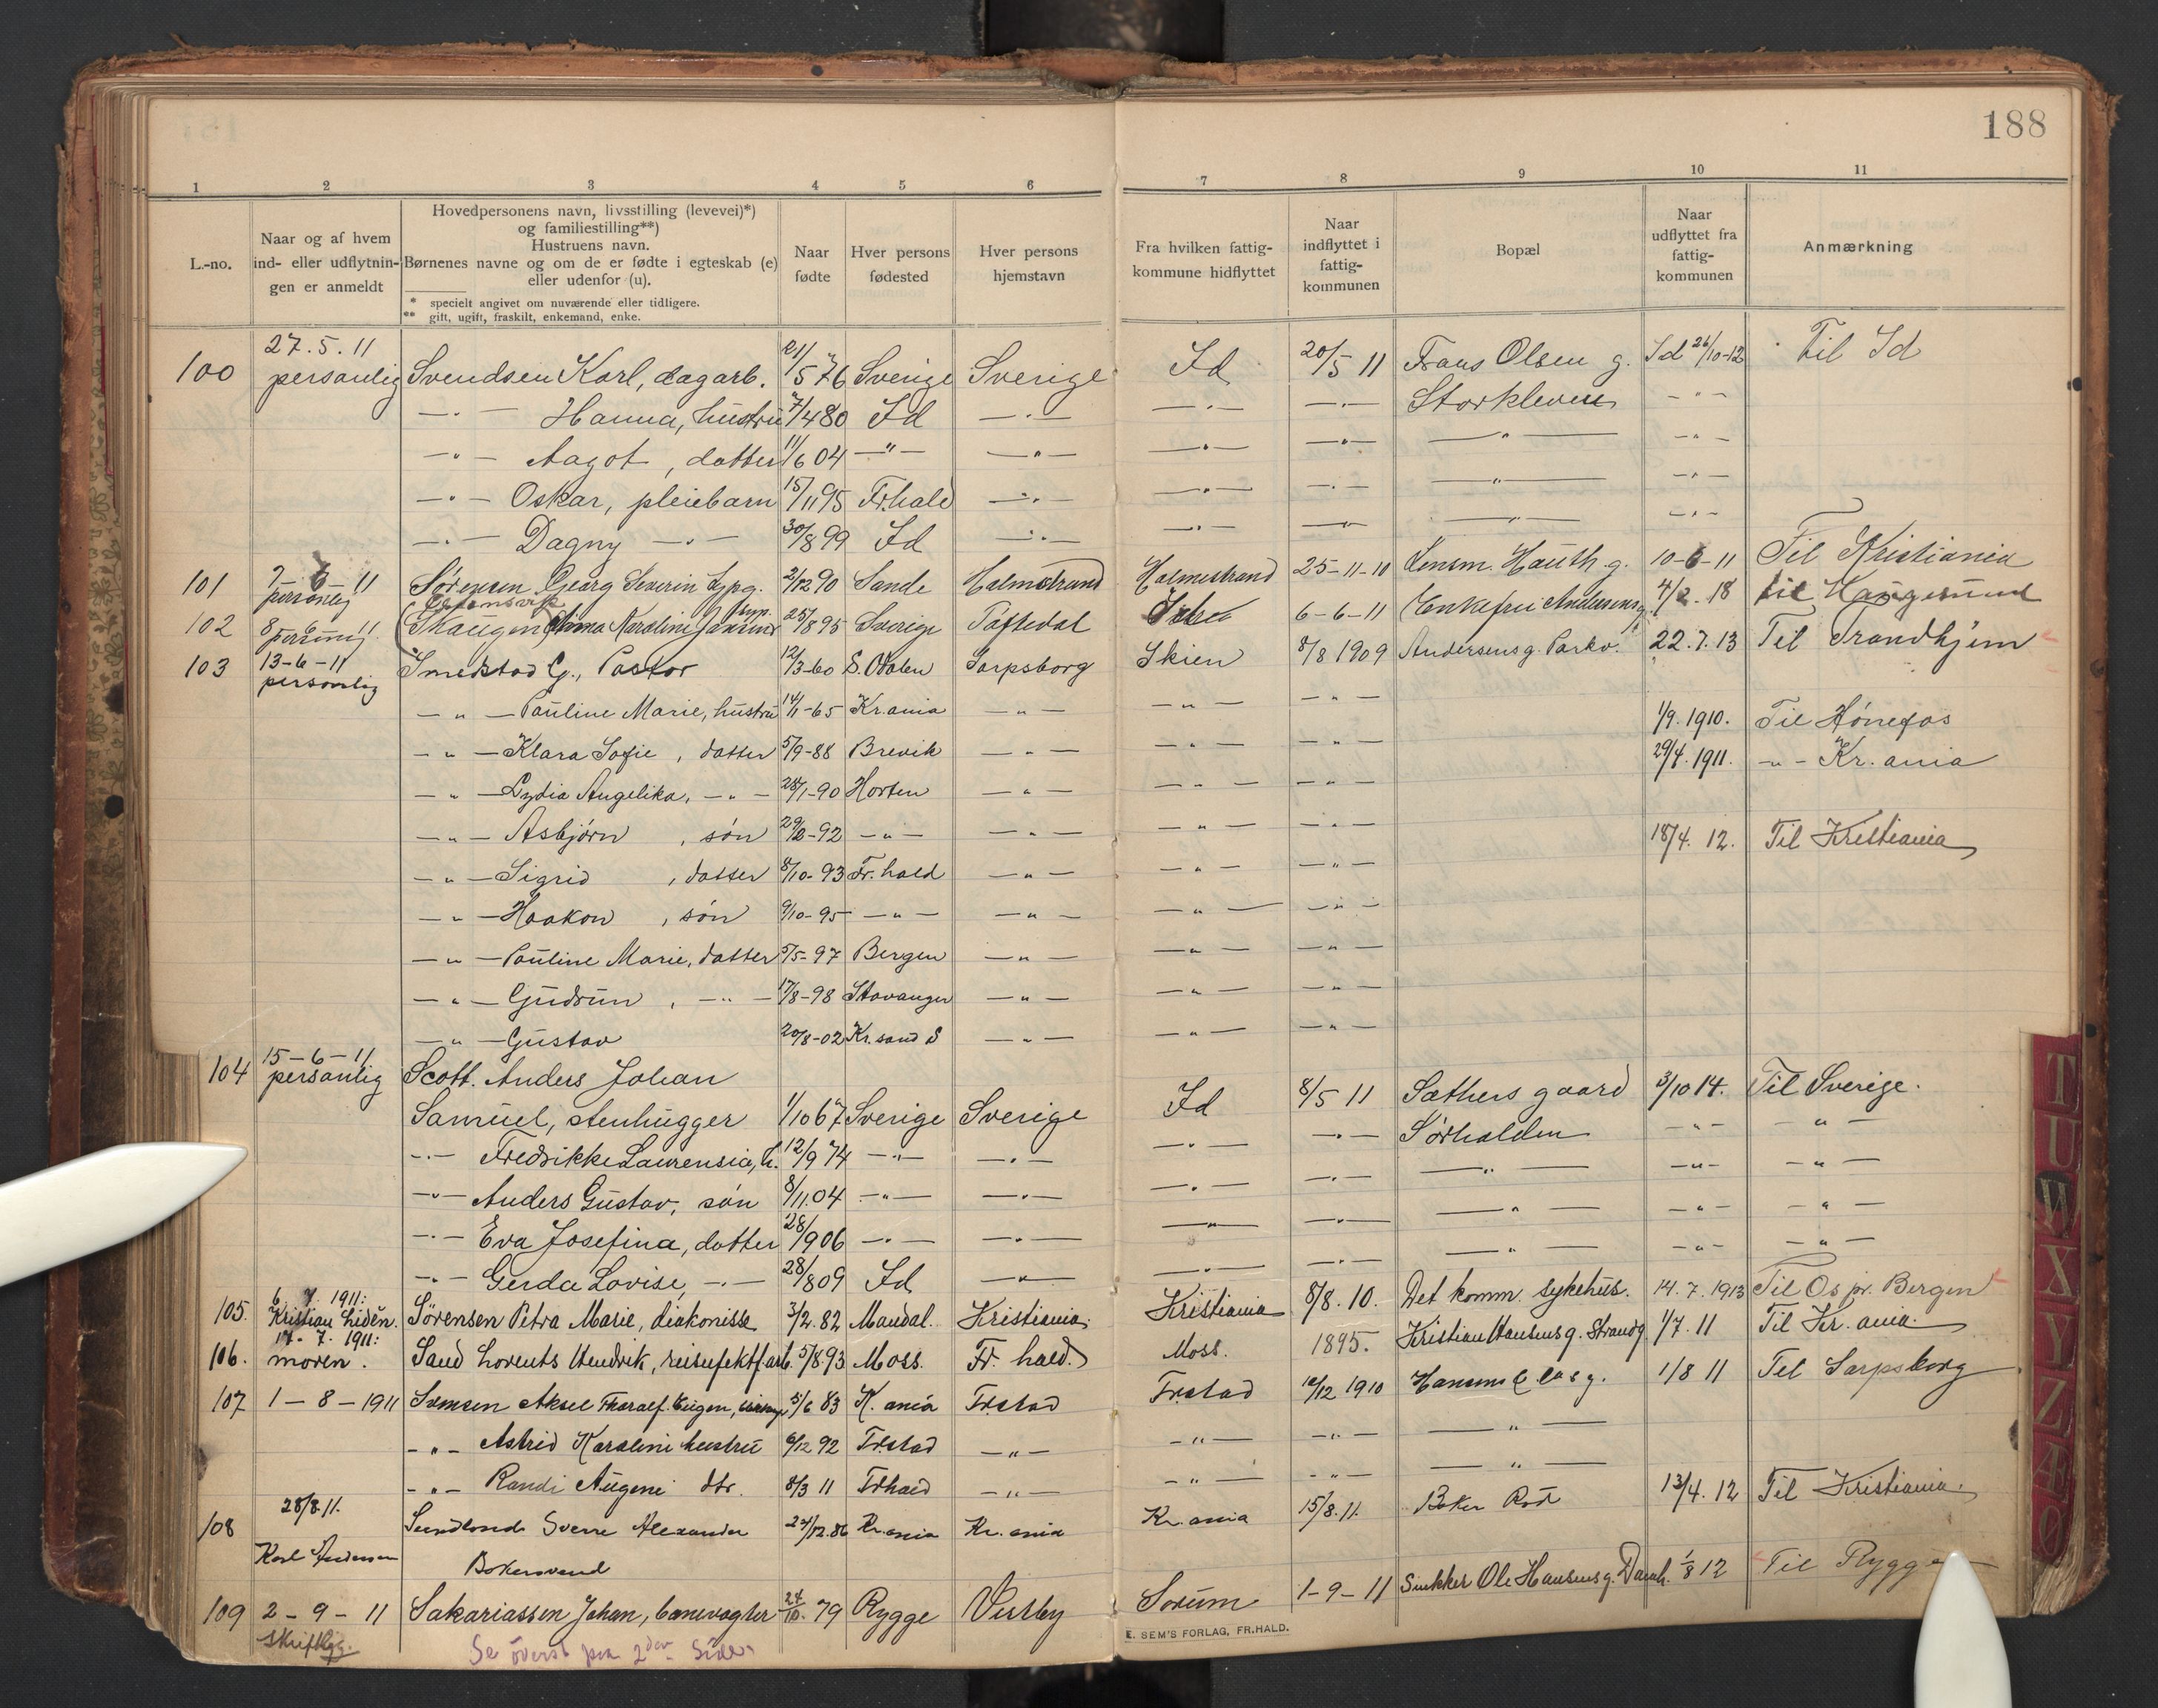 188
1 2 3 4 5 6 7 8 9 10 11
L.-no.
Naar og af hvem
ind- eller udflytnin-
gen er anmeldt
Hovedpersonens navn, livsstilling (levevei)*)
og familiestilling**)
Hustruens navn.
Børnenes navne og om de er fødte i egteskab (e)
eller udenfor (u).
* specielt angivet om nuværende eller tidligere.
** gift, ugift, fraskilt, enkemand, enke.
Naar
fødte
Hver persons
fødested
Hver persons
hjemstavn
Fra hvilken fattig-
kommune hidflyttet
Naar
indflyttet i
fattig-
kommunen
Bopæl
Naar
udflyttet fra
fattig-
kommunen
Anmærkning
27.5.11
100 personlig Svendsen Karl, dagarb. 21/5 76 Sverige Sverige Id 20/5 11 Frans Olsen g. Id 26/10-12 Til Id
—"— Hanna, hustru 7/4 80 Id —"— —"— —"— Storkleven —"—
—"— Aagot, datter 11/6 04 —"— —"— —"— —"— —"— —"—
—"— Oskar, pleiebarn 15/11 95 Fr.hald —"— —"— —"— —"— —"—
—"— Dagny —"— 30/8 99 Id —"— —"— —"— —"— —"—
101 7-6-11 personlig Sørensen Georg Severin Typg. 2/12 90 Sande Holmestrand Holmestrand 25-11-10 Lensm. Hauth g. 10-6-11 Til Kristiania
102 8 6 11 personlig (Skaugen, Anna Karoline 25/8 95 Sverige 6-6-11 Enkefru Andersens g. 4/2. 18 til Haugesund
103 13-6-11 personlig Smedstad G., Pastor 12/3-60 S. Odalen Sarpsborg Skien 8/8 1909 Andersens g. Parkv. 22.7.13 Til Trondhjem
—"— Pauline Marie, hustru 14/11-65 Kr.ania —"— —"— —"—
—"— Klara Sofie, datter 5/9-88 Brevik —"— —"— —"— 1/9. 1910. Til Hønefos
—"— Lydia Angelika, —"— 28/1-90 Horten —"— —"— —"— 29/4. 1911. —"— Kr.ania
—"— Asbjørn, søn 29/2-92 —"— —"— —"— —"—
—"— Sigrid, datter 8/10-93 Fr.hald —"— —"— —"— 18/4. 12. Til Kristiania
—"— Haakon, søn 9/10-95 —"— —"— —"— —"—
—"— Pauline Marie, datter 5/5-97 Bergen —"— —"— —"—
—"— Gudrun, —"— 17/8-98 Stavanger —"— —"— —"—
—"— Gustav 20/8-02 Kr.sand S —"— —"— —"—
104 15-6-11 personlig Scott. Anders Johan
Samuel, stenhugger 1/10 67 Sverige Sverige Id 8/5 11 Sæthers gaard 3/10 14. Til Sverige.
—"— Fredrikke Laurensia, h. 12/9 74 —"— —"— —"— —"— Sørhalden —"— —"—
—"— Anders Gustav, søn 8/11.04 —"— —"— —"— —"— —"— —"— —"—
—"— Eva Josefina, datter 28/9 06 —"— —"— —"— —"— —"— —"— —"—
—"— Gerda Lovise, —"— 28/8 09 Id —"— —"— —"— —"— —"— —"—
105. 6. 7. 1911: Kristian Lidén. Sørensen Petra Marie, diakonisse 3/2. 82 Mandal. Kristiania. Kristiania 8/8. 10. Det komm. sykehus. 14. 7. 1913 Til Os pr. Bergen
106. 17. 7. 1911: moren. Sand Lorents Hendrik, reiseffektf.arb. 5/8.93 Moss. Fr. hald. Moss. 1895. Kristian Hansens g. Strandg 1/7. 11 Til Kr. ania.
107 1-8-1911 Svensen Aksel Thoralf Eugen, 5/6 83 K. ania Fr.stad Fr.stad 10/12 1910 Hansens g. 1/8 11 Til Sarpsborg
—"— Astrid Karoline hustru 6/12 92 Fr.stad —"— —"— —"— —"—
—"— Randi Augene dtr. 8/3 11 Fr.hald —"— —"— —"— —"—
108 28/8 11. Karl Andersen Sundlund Sverre Alexander 23/12.86 Kr.ania Kr.ania Kr.ania 15/8.11. Baker Rød 13/4. 12 Til Kristiania.
Bakersvend
109 2-9-11 skriftlig. Sakariassen Johan, banevogter 24/10. 79 Rygge Vestby Sørum 1-9-11 Snekker Ole Hansens g. Damh. 1/8 12 Til Rygge
Se øverst paa 2den Side
E. SEM'S FORLAG, FR.HALD.
T
U
W
X
Y
Z
Æ
Ø